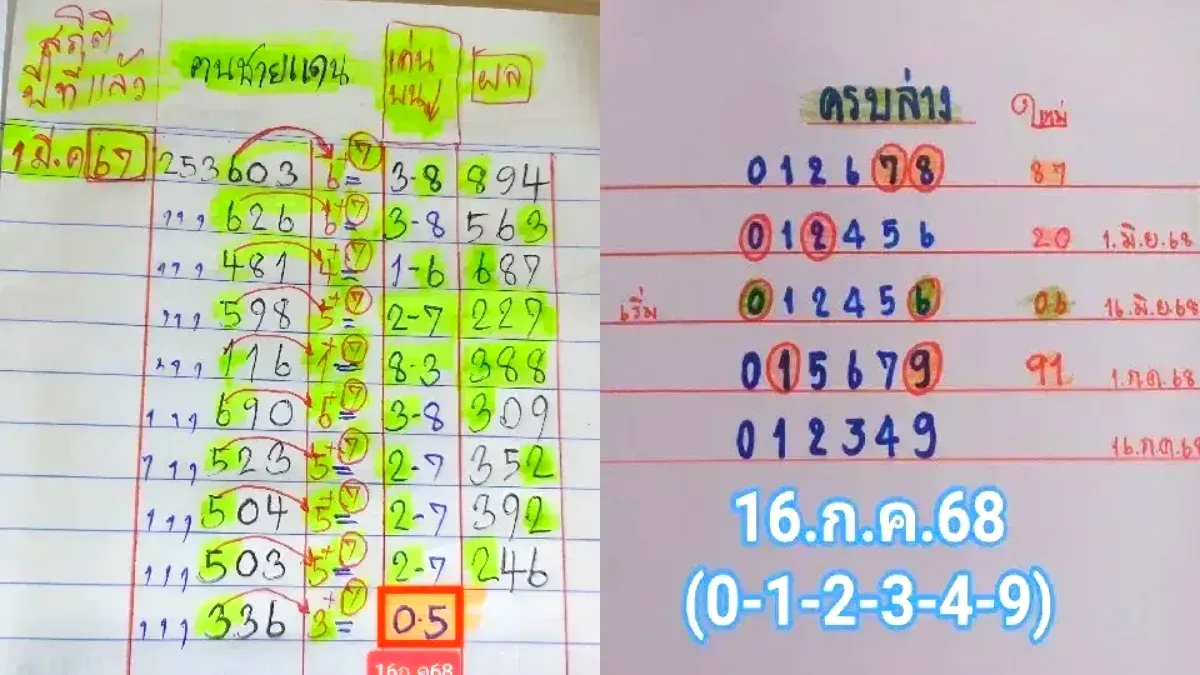 สถิติ
ปีที่แล้ว
คนชายแดน
เด่น
บน
ผล
1 มี.ค 67 253603 6 = +7 3-8 894
,,, 626 6 = +7 3-8 563
,,, 481 4 = +7 1-6 687
,,, 598 5 = +7 2-7 227
,,, 116 1 = +7 8-3 388
,,, 690 6 = +7 3-8 309
,,, 523 5 = +7 2-7 352
,,, 504 5 = +7 2-7 392
,,, 503 5 = +7 2-7 246
,,, 336 3 = +7 0.5
16ก.ค68
ครบล่าง
ใหม่
0 1 2 6 7 8 87
0 1 2 4 5 6 20 1.มิ.ย.68
เริ่ม 0 1 2 4 5 6 06 16.มิ.ย.68
0 1 5 6 7 9 91 1.ก.ค.68
0 1 2 3 4 9 16.ก.ค.68
16.ก.ค.68
(0-1-2-3-4-9)